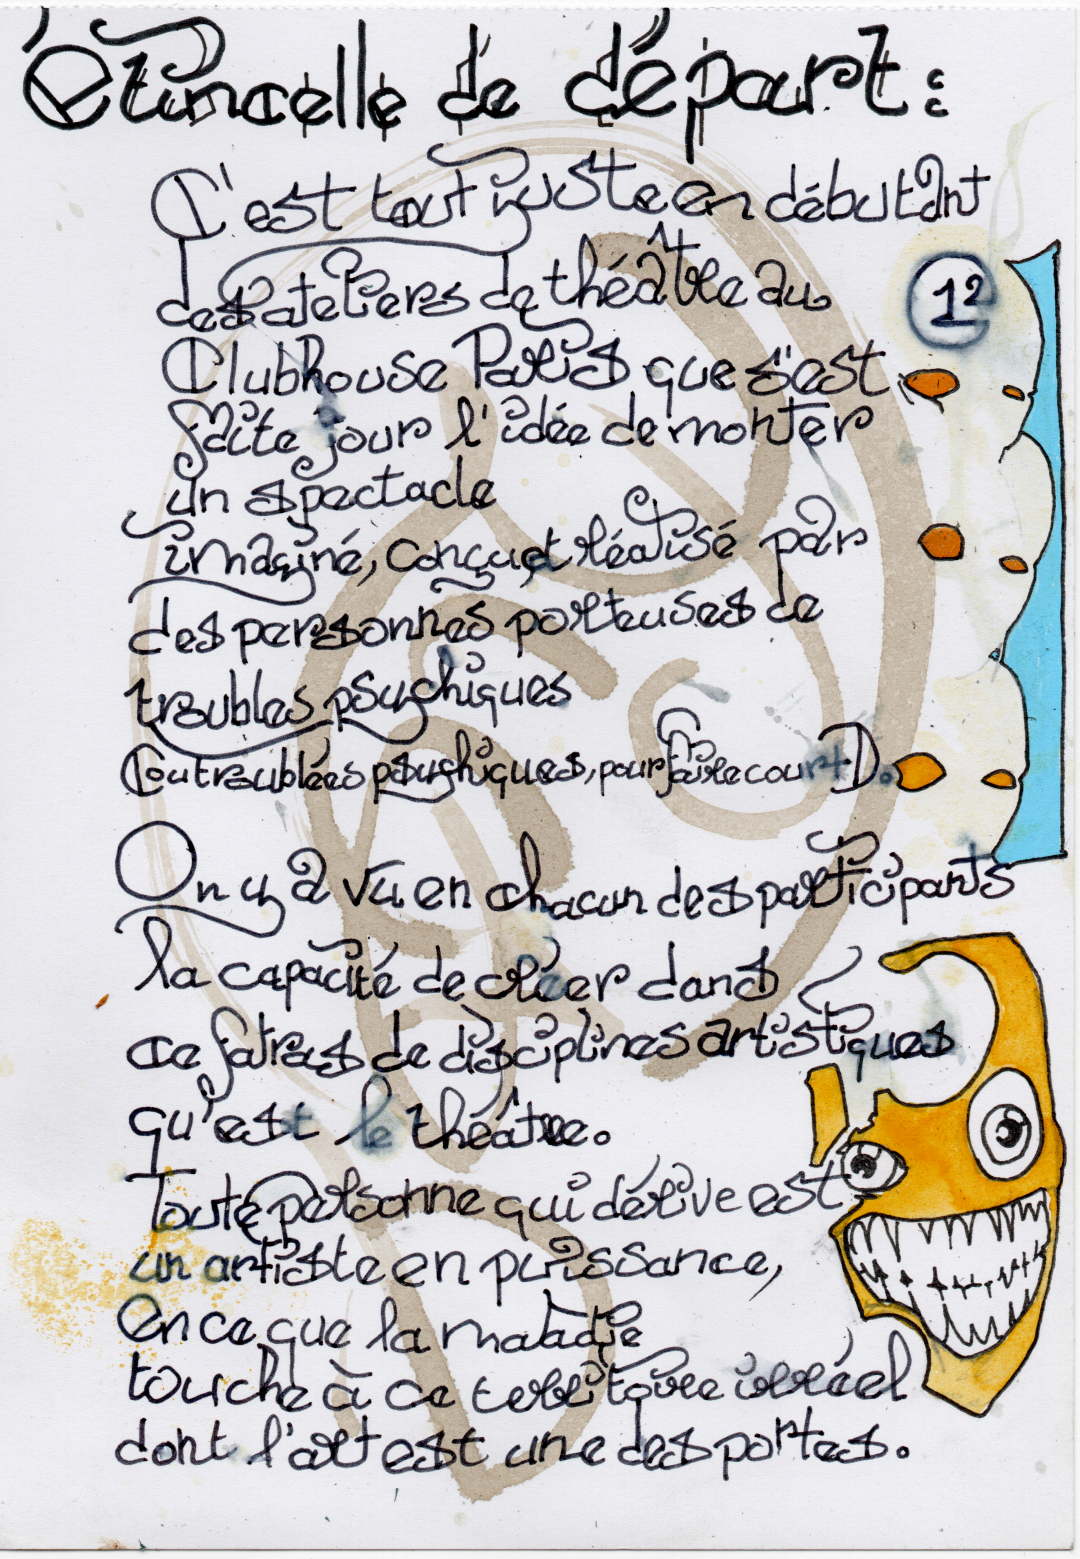 étincelle de départ :
C'est tout juste en débutant
des ateliers de théâtre au
12
Clubhouse Paris que s'est
faite jour l'idée de monter
un spectacle
imaginé, conçu et réalisé par
des personnes porteuses de
troubles psychiques
(ou troublées psychiques, pour faire court).
On y a vu en chacun des participants
la capacité de créer dans
ce fatras de disciplines artistiques
qu'est le théâtre.
Toute personne qui dérive est
un artiste en puissance,
en ce que la maladie
touche à ce territoire irréel
dont l'art est une des portes.